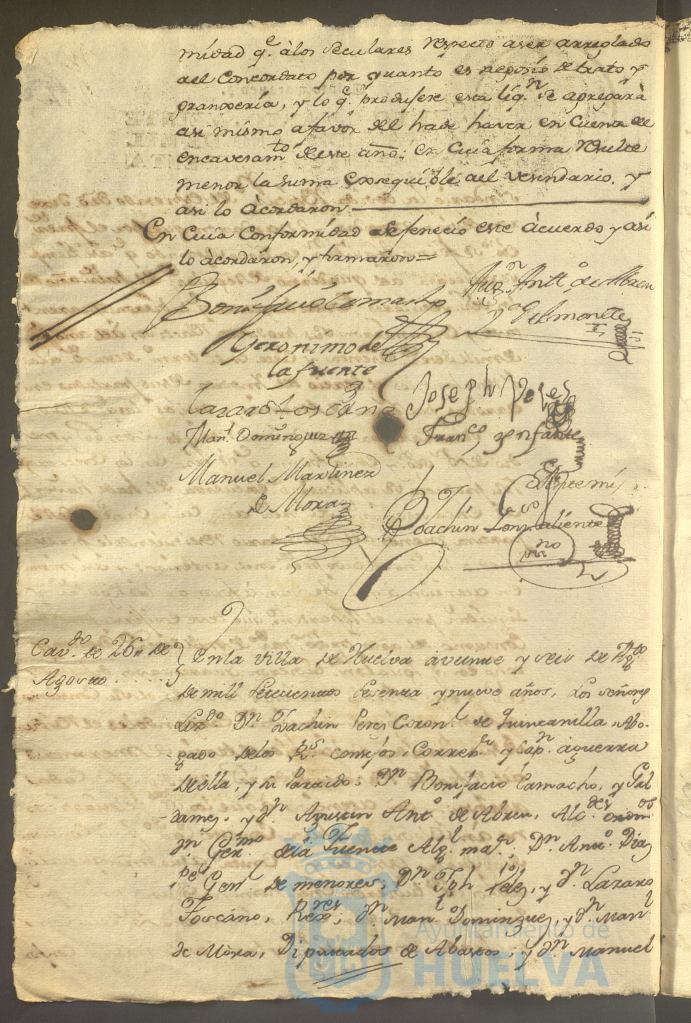 midad q.e à los seculares respecto a ser arreglado
al Concordato por quanto es neposio de trato y
granxeria, y lo q.e produsere esta liq.n se agregarà
asi mismo a favor del hade haver en Cuenta de
encavesam.to de este año, en Cuia forma resulte
menor la suma exsequible al vesindario, y
asi lo àcordaron
En Cuia Conformidad se feneciò este àcuerdo y asi
lo acordaron, y firmaron =
Bonifacio Camacho
Ant.o de Abreu
Geronimo de
la fuente
Lazaro Toscano
Joseph
Man.l Dominguez
Fran.co Infante
Manuel Martinez
de Mora
Ante mi
Joachin
Cav.do de 26 de
Agosto
En la villa de Huelva à veinte y seis de Ag.to
de mill setecientos sesenta y nueve años, Los señores
Liz.do D.n Joachin Peres Coron.l de Quintanilla Abo-
gado de los R.s consejos, Correx.or y Cap.n àguerra
de ella, y su Partido; D.n Bonifacio Camacho, y Gal
dames, y d.n Agustin Ant.o de Abreu, Alc.des ordin.os
d.n Ger.mo de la Fuente Alg.l ma.r; D.n Ant.o Dias
Gen.l de menores; D.n Jph Telez, y d.n Lazaro
Toscano, Rex.res; d.n Man.l Dominguez, y d.n Man.l
de Mora, Diputados de Abastos; y d.n Manuel
Ayuntamiento de
HUELVA